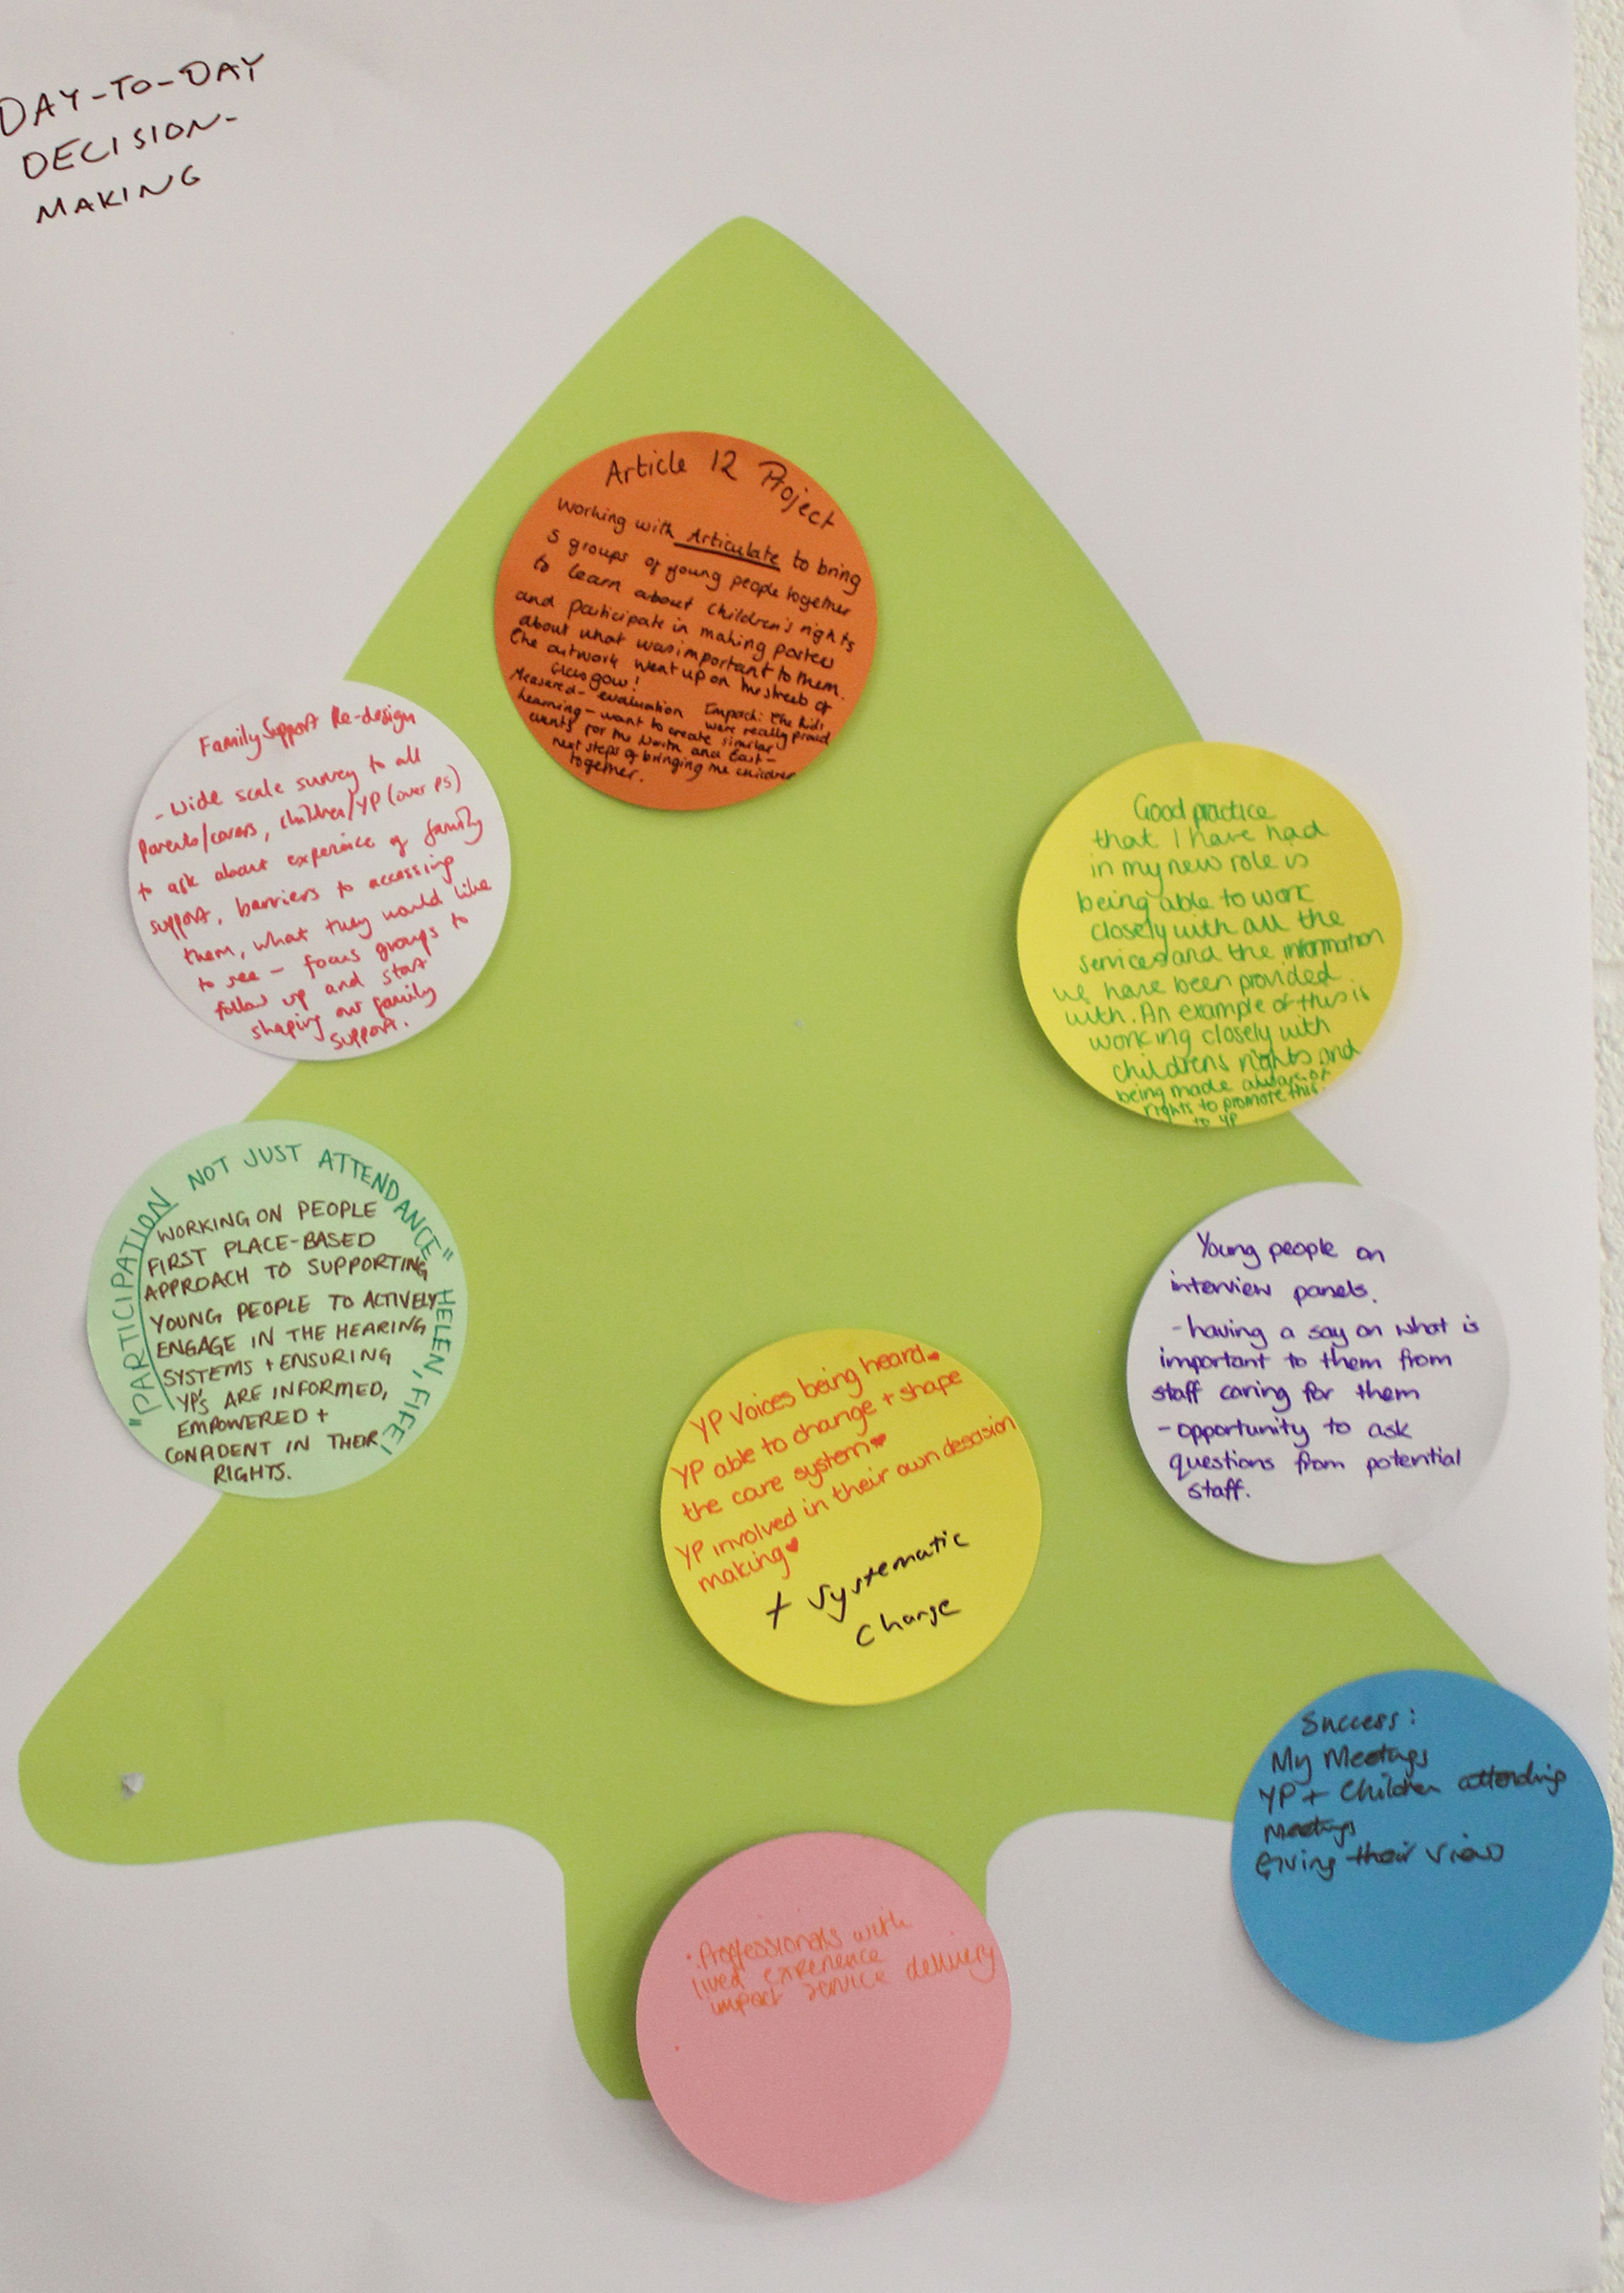 DAY-TO-DAY
DECISION-
MAKING
Article 12 Project
Working with Articulate to bring
5 groups of young people together
to learn about children's rights
and participate in making posters
about what was important to them.
The artwork went up on the streets of
Glasgow!
Measured - evaluation Impact: The kids
were really proud
Learning - want to create similar
events for the North and East -
next steps of bringing the children
together.
Family Support Re-design
- wide scale survey to all
parents/carers, children/YP (over P5)
to ask about experience of family
support, barriers to accessing
them, what they would like
to see - focus groups to
follow up and start
shaping our family
support.
Good practice
that I have had
in my new role is
being able to work
closely with all the
services and the information
we have been provided
with. An example of this is
working closely with
childrens rights and
being made aware of
rights to promote this
to YP
"PARTICIPATION NOT JUST ATTENDANCE"
HELEN, FIFE!
WORKING ON PEOPLE
FIRST PLACE-BASED
APPROACH TO SUPPORTING
YOUNG PEOPLE TO ACTIVELY
ENGAGE IN THE HEARING
SYSTEMS + ENSURING
YP's ARE INFORMED,
EMPOWERED +
CONFIDENT IN THEIR
RIGHTS.
Young people on
interview panels.
- having a say on what is
important to them from
staff caring for them
- opportunity to ask
questions from potential
staff.
YP Voices being heard♥
YP able to change + shape
the care system♥
YP involved in their own descision
making♥
+ systematic
change
Success:
My Meetings
YP + Children attending
Meetings
Giving their views
• Proffessionals with
lived experience
impact service delivery